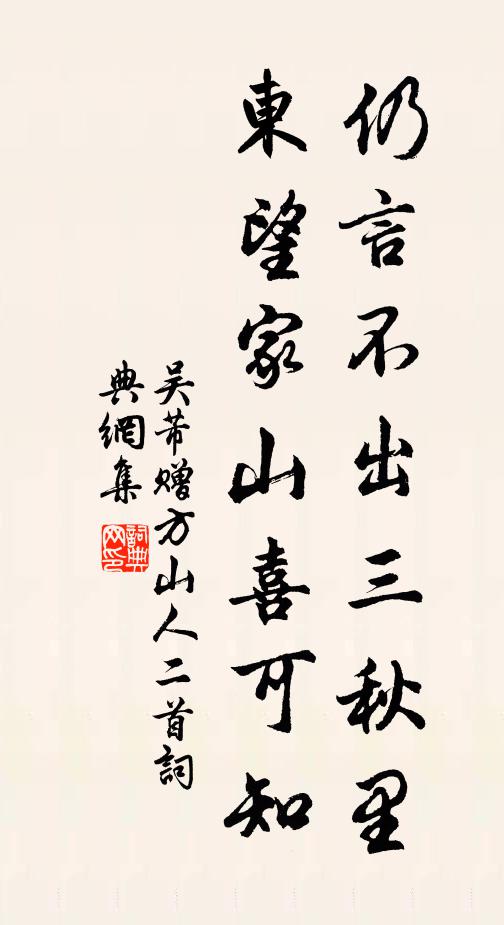 仍言不出三秋里
東望家山喜可知
吴芾赠方山人二首詞
典網集
詞典網印